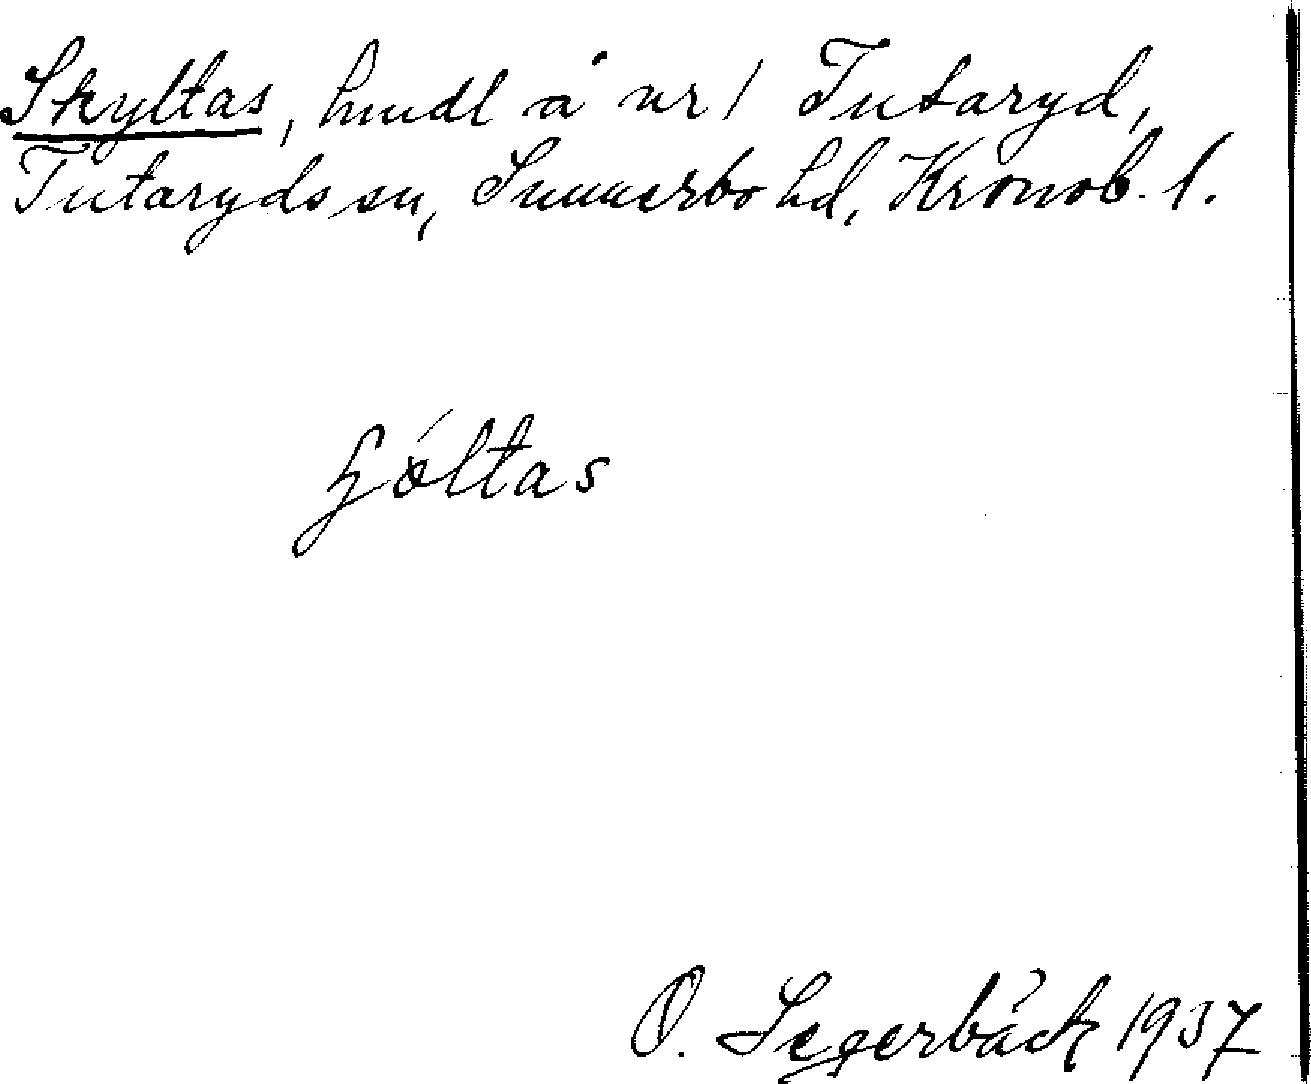 Skyltas, lmdl å nr 1 Tutaryd,
Tutaryds sn, Sunnerbo hd, Kronob. l.
ɧöltas
O. Segerbäck 1937